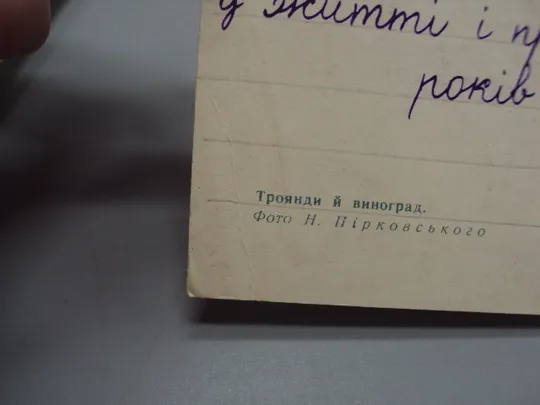 у житті і
років
Троянди й виноград.
Фото Н. Пірковського